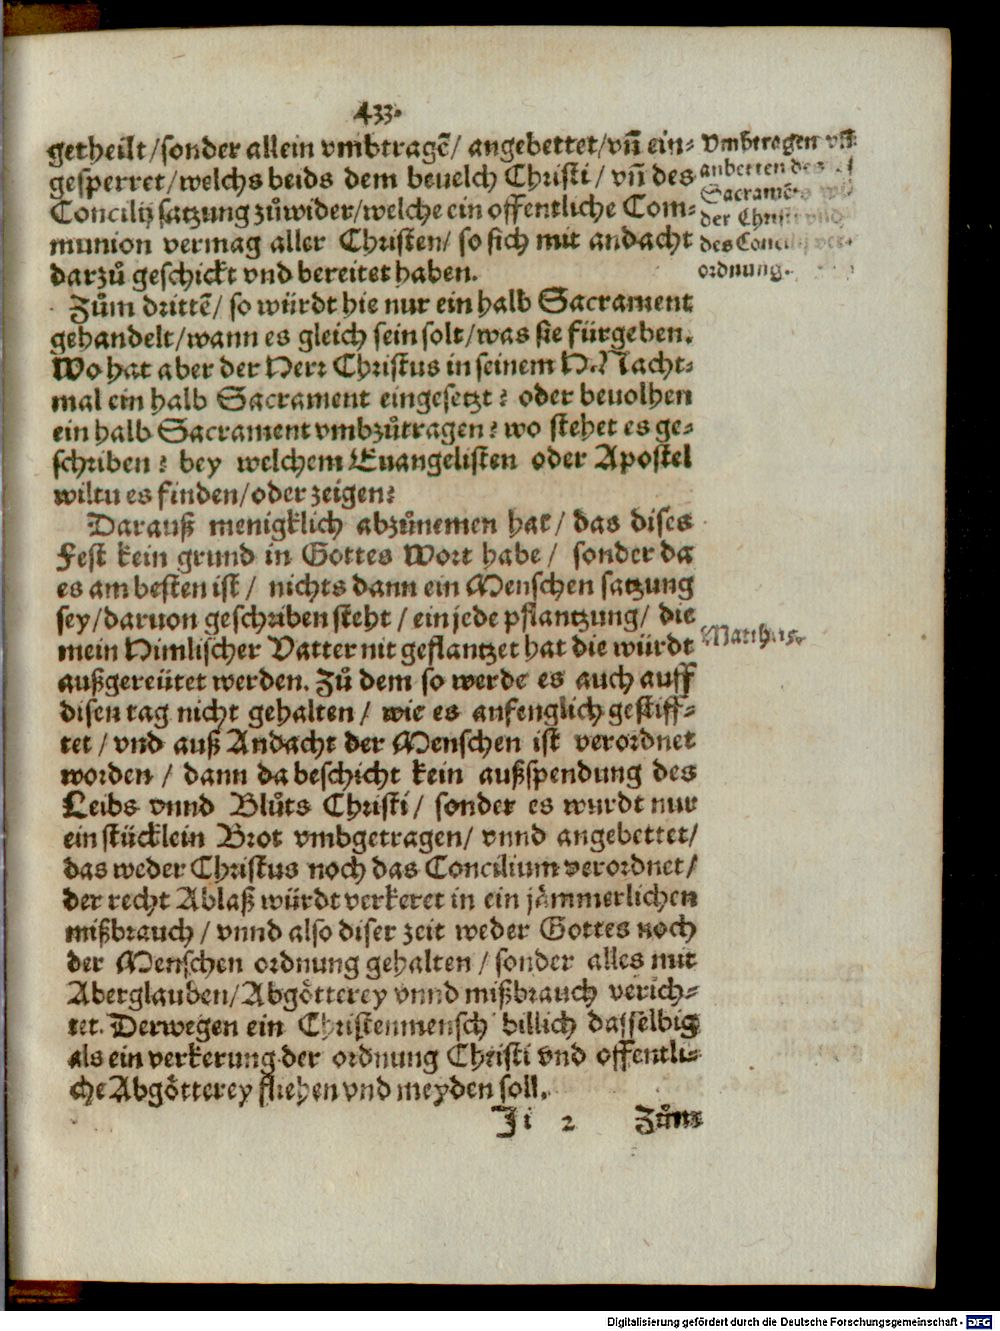 433.
getheilt/sonder allein vmbtragē/ angebettet/vn̄ ein⸗
gesperret/welchs beids dem beuelch Christi/ vn̄ des
Concilij satzung zůwider/welche ein offentliche Com⸗
munion vermag aller Christen/ so sich mit andacht
darzů geschickt vnd bereitet haben.
Vmbtragen vn̄
anbetten des
Sacramē⸗
der Christi vnd
des Concilij ver⸗
ordnung.
Zům drittē/ so würdt hie nur ein halb Sacrament
gehandelt/wann es gleich sein solt/was sie fürgeben.
Wo hat aber der Herr Christus in seinem H. Nacht⸗
mal ein halb Sacrament eingesetzt? oder beuolhen
ein halb Sacrament vmbzůtragen? wo stehet es ge⸗
schriben? bey welchem Euangelisten oder Apostel
wiltu es finden/oder zeigen?
Darauß menigklich abzůnemen hat/ das dises
Fest kein grund in Gottes Wort habe/ sonder da
es am besten ist/ nichts dann ein Menschen satzung
sey/daruon geschriben steht/ein jede pflantzung/ die
mein Himlischer Vatter nit geflantzet hat die würdt
außgereütet werden. Zů dem so werde es auch auff
disen tag nicht gehalten/ wie es anfenglich gestiff⸗
tet/vnd auß Andacht der Menschen ist verordnet
worden/ dann da beschicht kein außspendung des
Leibs vnnd Blůts Christi/ sonder es wurdt nur
ein stücklein Brot vmbgetragen/ vnnd angebettet/
das weder Christus noch das Concilium verordnet/
der recht Ablaß würdt verkeret in ein jåmmerlichen
mißbrauch/vnnd also diser zeit weder Gottes noch
der Menschen ordnung gehalten/sonder alles mit
Aberglauben/Abgötterey vnnd mißbrauch verich⸗
tet. Derwegen ein Christenmensch billich dasselbig
als ein verkerung der ordnung Christi vnd offentli⸗
che Abgötterey fliehen vnd meyden soll.
Matth. 15.
Ji 2 Zům
Digitalisierung gefördert durch die Deutsche Forschungsgemeinschaft - DFG